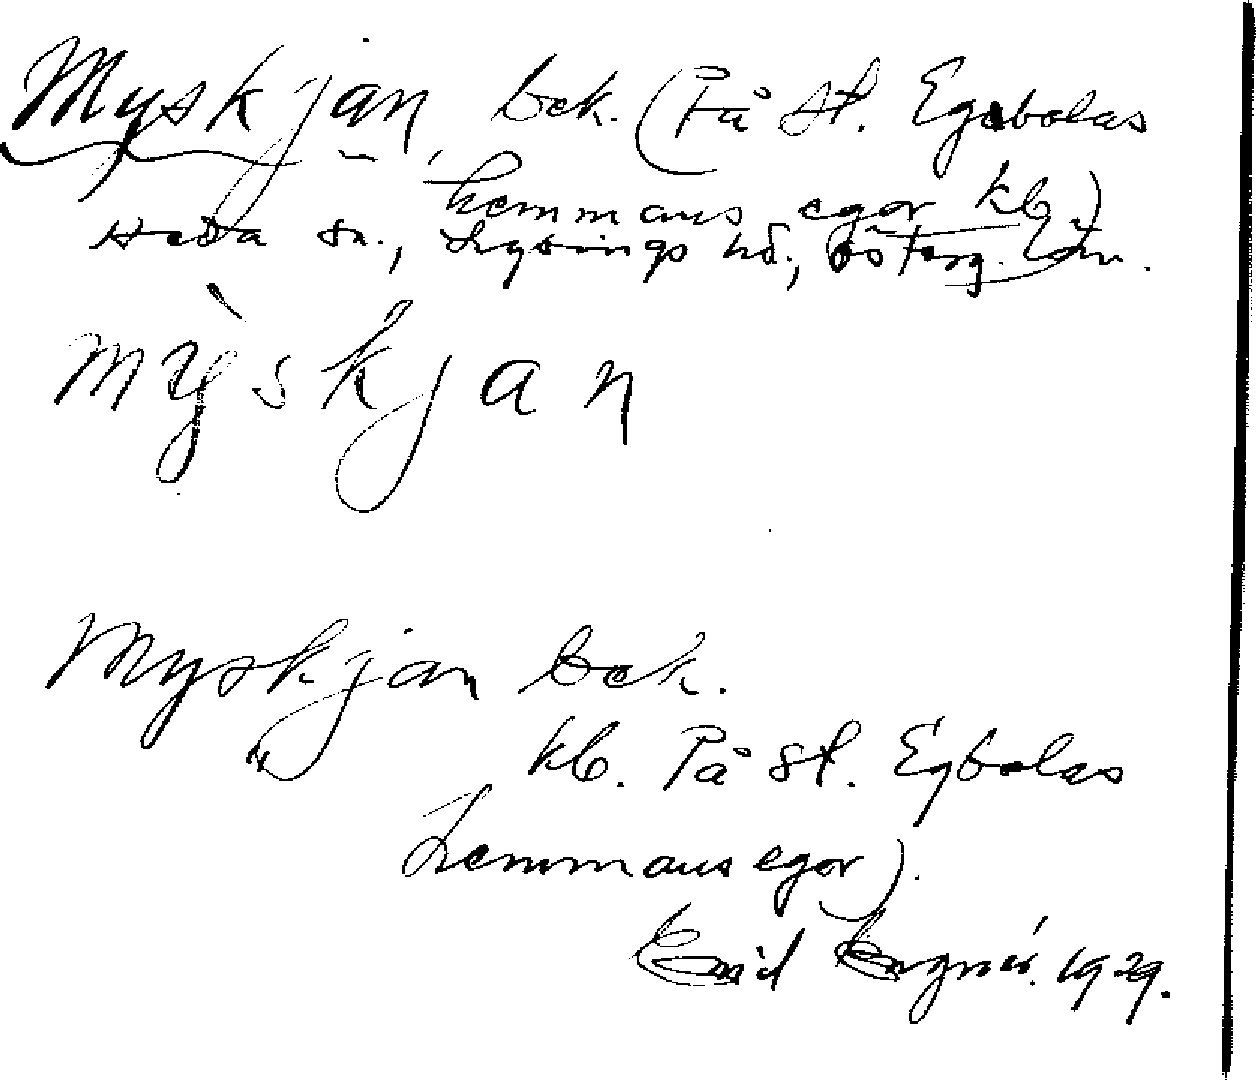 Myskjan, bck. (På St. Egebolas
hemmans egor kb.)
Heda sn., Lysings hd., Österg. län.
mỳskjan
Myskjan bck.
kb. På St. Egbolas
hemmans egor).
Emil 1929.